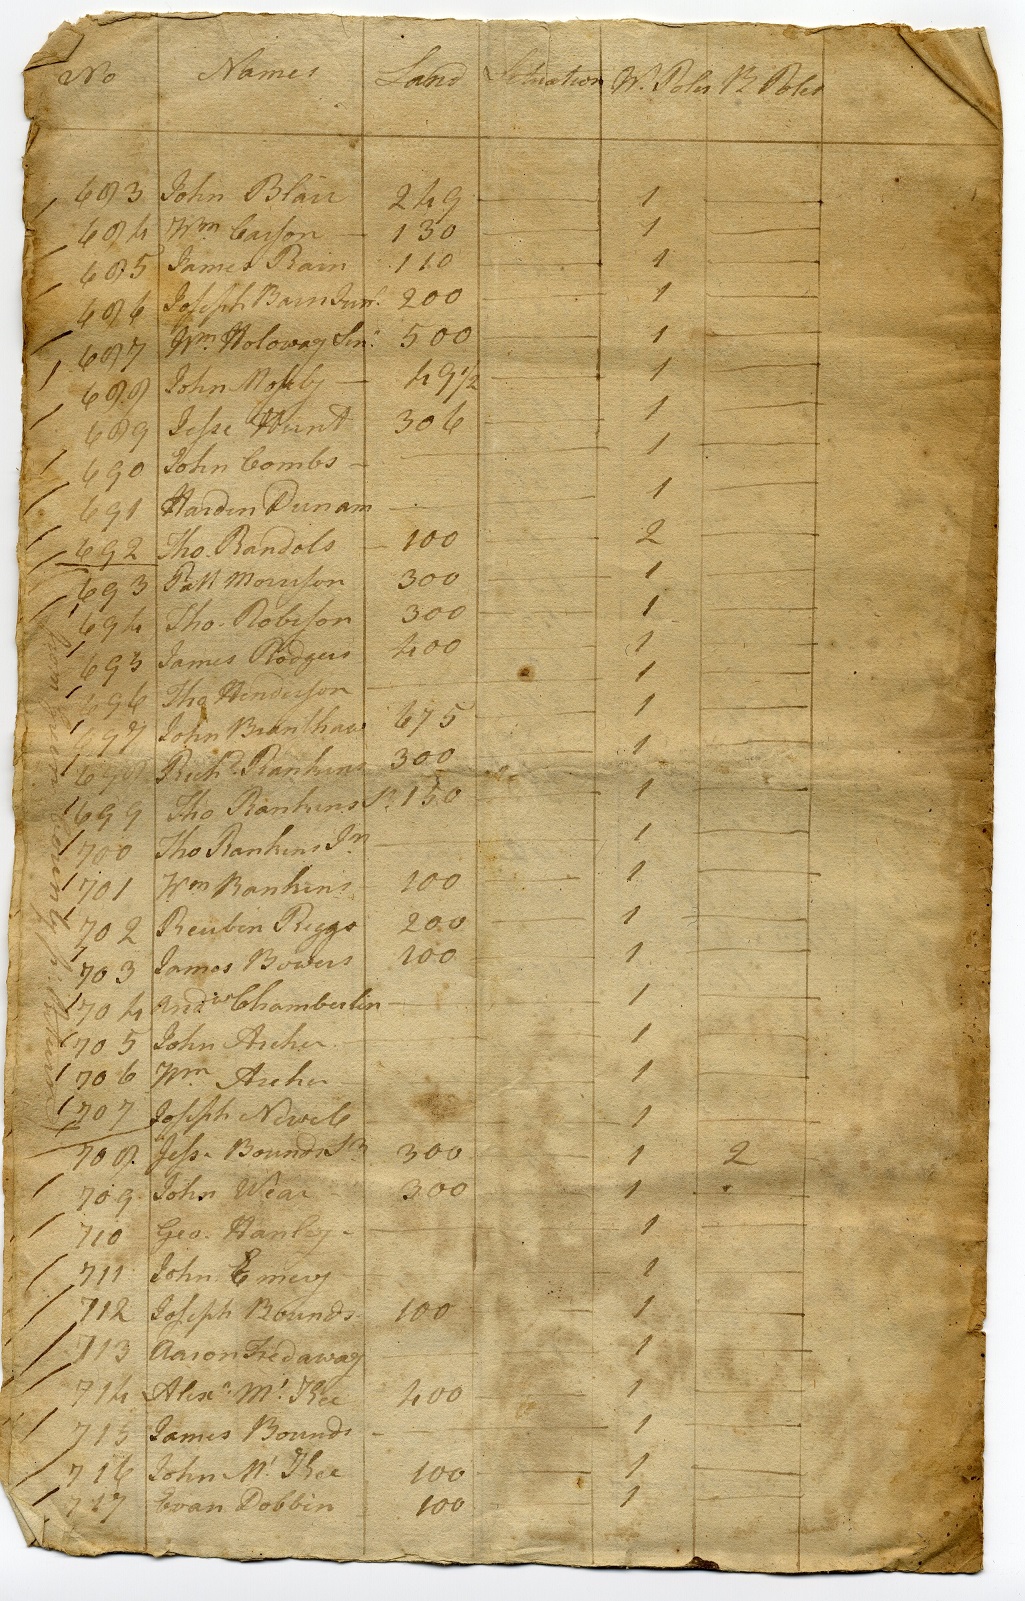 No Names Land Situation W. Poles B Poles
683 John Blair 249 1
684 Wm Carson 130 1
685 James Bain 110 1
686 Joseph Bain Junr. 200 1
687 Wm. Holoway Senr. 500 1
688 John Mosby 49 1/2 1
689 Jesse Hunt 306 1
690 John Combs 1
691 Harden Dunam 1
692 Tho. Randols 100 2
693 Patt Morrison 300 1
694 Tho. Robison 300 1
695 James Rodgers 400 1
696 Tho Henderson 1
697 John Branthaw 675 1
698 Richd. Rankins 300 1
699 Tho Rankins Sr. 150 1
700 Tho Rankins Jn 1
701 Wm Rankins 100 1
702 Reubin Riggs 200 1
703 James Bowers 100 1
704 Andw Chamberlin 1
705 John Archer 1
706 Wm Archer 1
707 Joseph Newell 1
708 Jesse Bounds Sr 300 1 2
709 John Wear 300 1
710 Geo. Hanley 1
711 John Emery 1
712 Joseph Bounds 100 1
713 Aaron Tredaway 1
714 Alexr. Mc. Kee 400 1
715 James Bounds 1
716 John Mc. Kee 100 1
717 Evan Dobbin 100 1
county